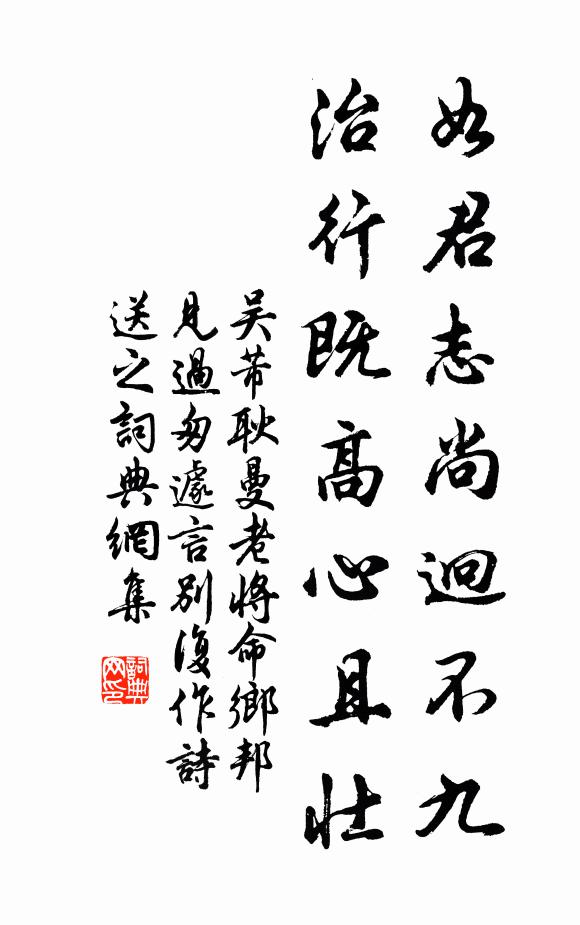 如君志尚迥不九
治行既高心且壮
吴芾耿曼老將命鄉邦
見過匆遽言別復作詩
送之詞典網集
詞典网印